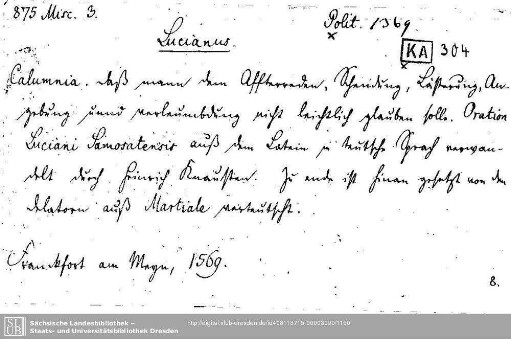 875 Misc. 3.
Polit. 1369
x
Lucianus.
KA 304
x
Calumnia. daß mann dem Affterreden, Schendung, Lästerung, An-
gebung unnd verleumbdung nicht leichtlich glauben solle. Oration
Luciani Samosatensis auß dem Latein in teutsche Sprach verwan-
delt durch Heinrich Knausten. Zu ende ist hinan gesetzt von den
delatorn auß Martiale verteutscht.
Franckfort am Meyn, 1569.
8.
SLUB
Sächsische Landesbibliothek –
Staats- und Universitätsbibliothek Dresden